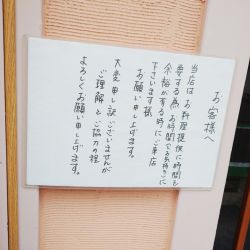 お客様へ
当店は お料理提供に時間を
要する為 お時間とお気持ちに
余裕が有る時にご来店
下さいます様
お願い申し上げます。
大変申し訳ございませんが
ご理解とご協力の程
よろしくお願い申し上げます。